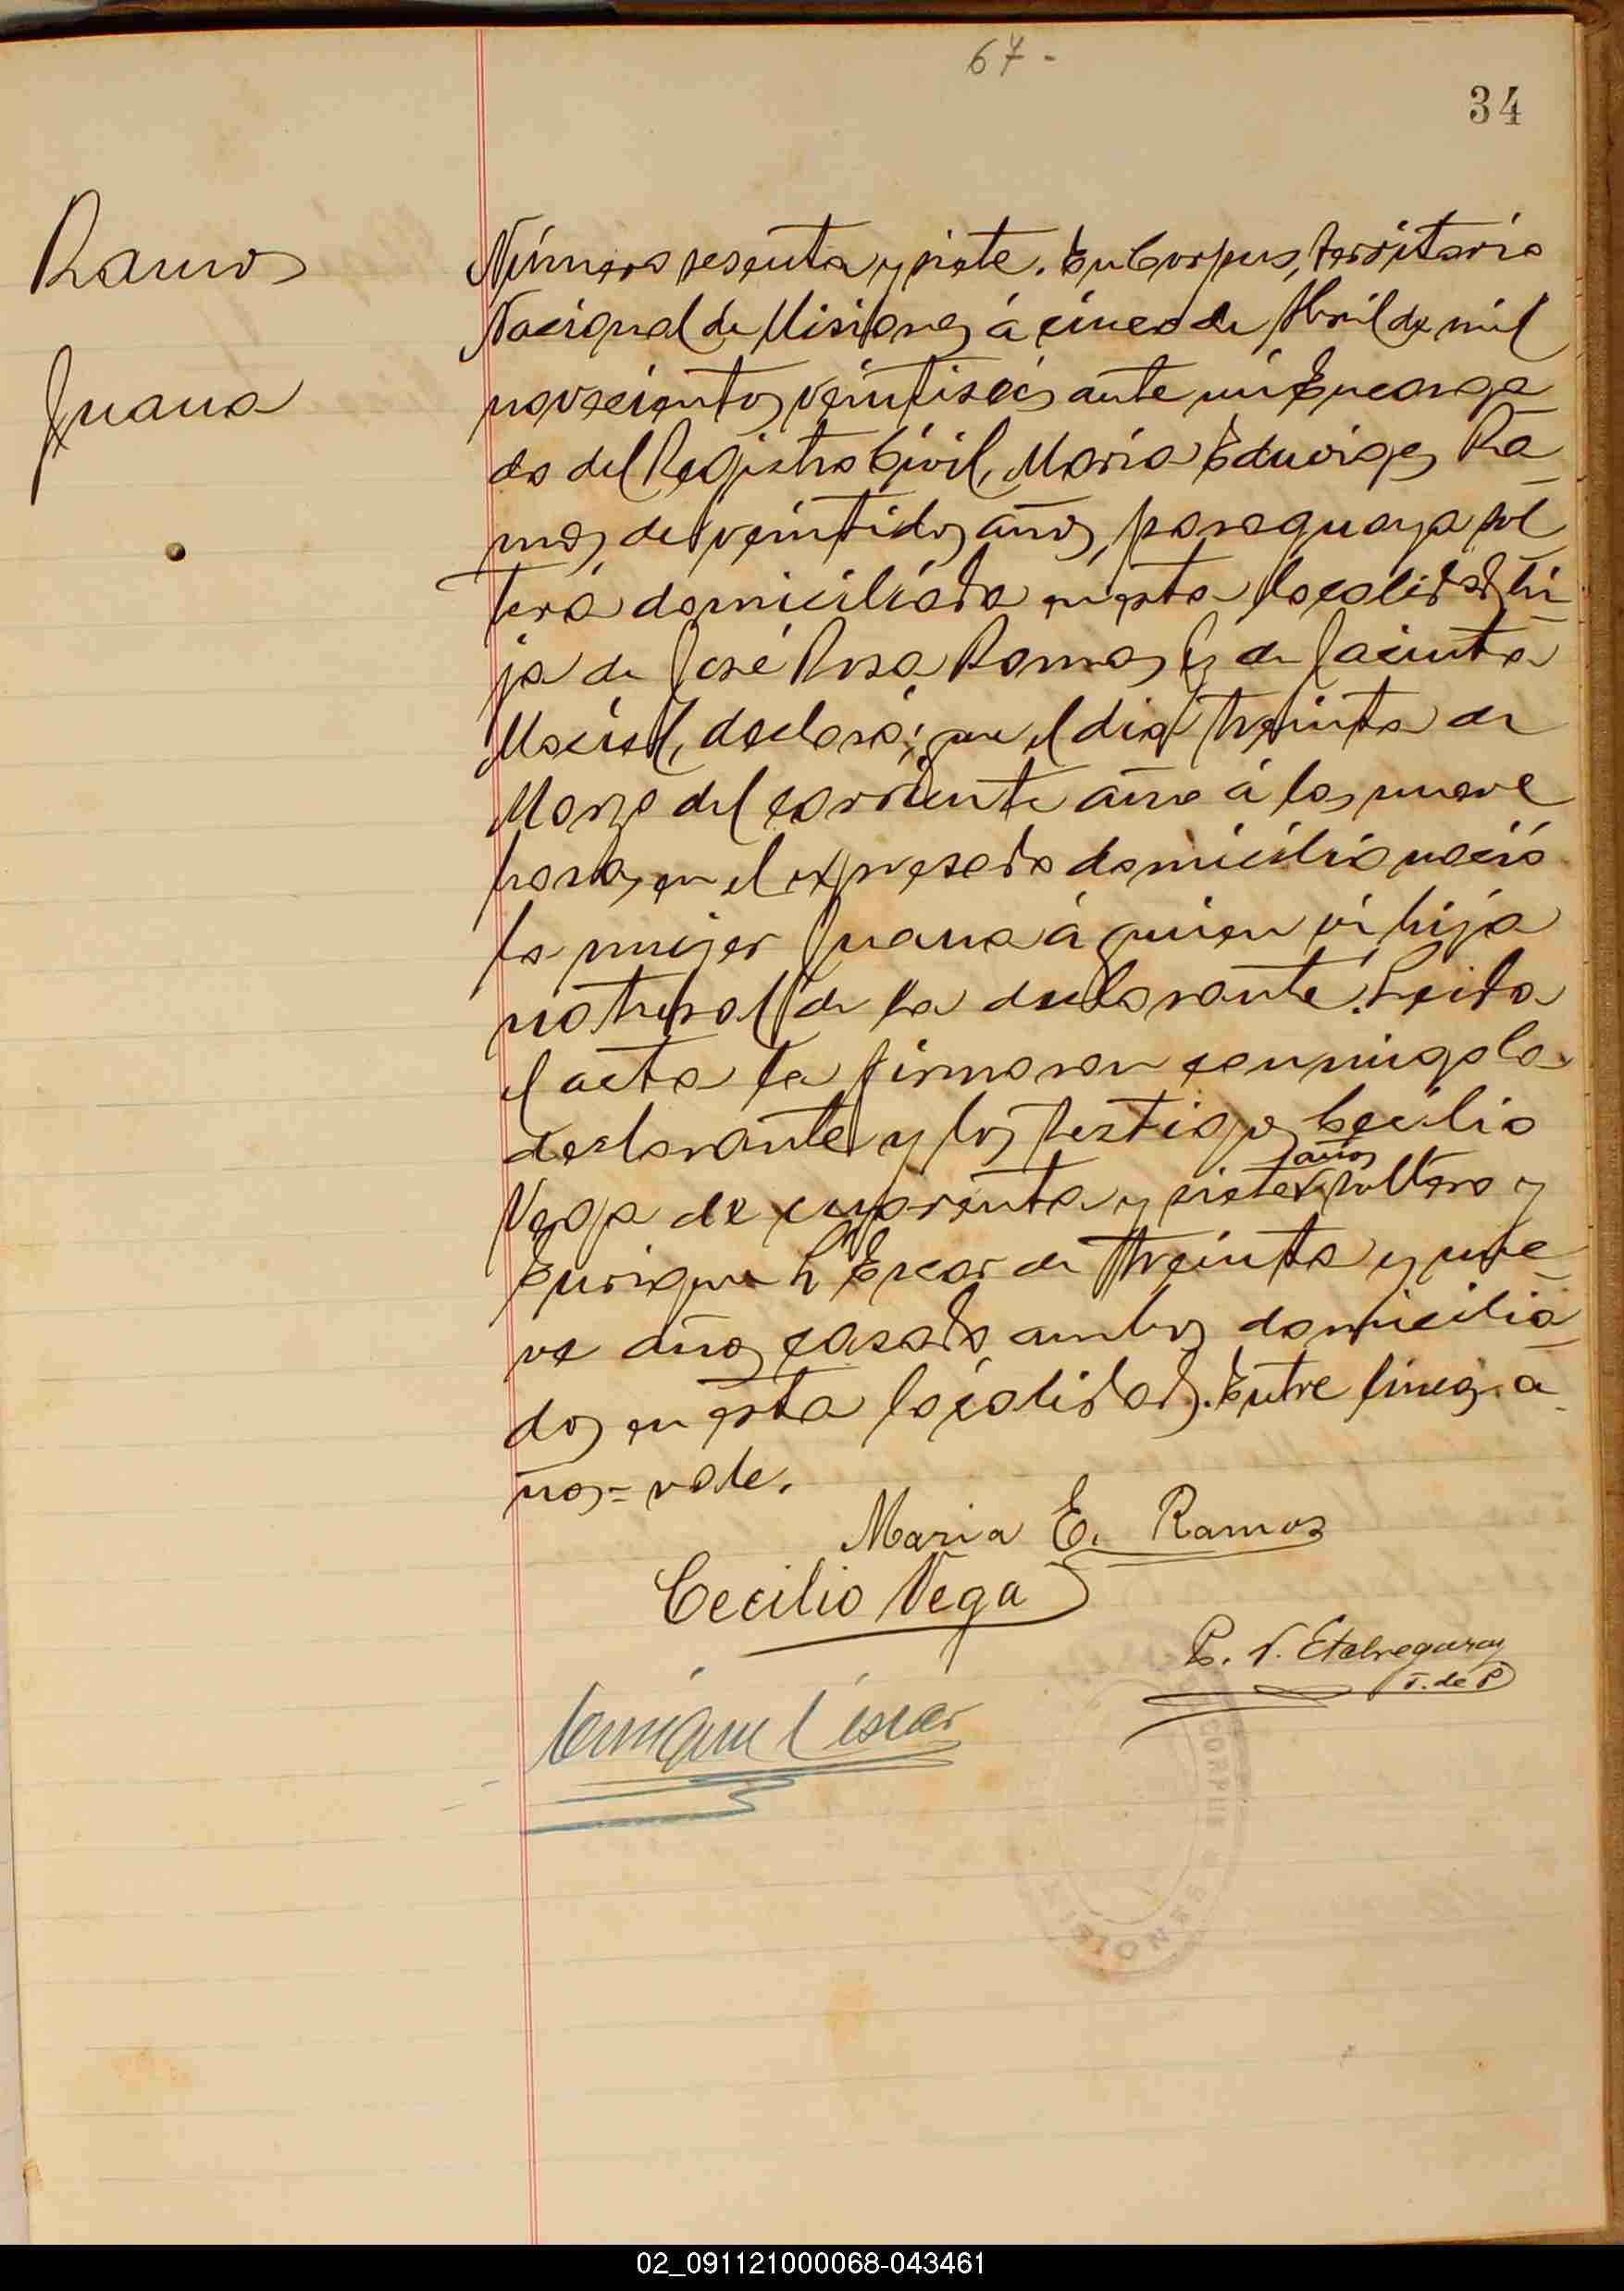 67-
34
Ramos
Juana
Número sesenta y siete. En Corpus, territorio
Nacional de Misiones á cinco de Abril de mil
novecientos veintiseis ante mi Encarga
do del Registro Civil, Maria Eduviges Ra
mos de veintidos años, paraguaya sol
tera domiciliada en esta localidad, hi
ja de José Rosa Ramos y de Jacinta
Maciel, declaró: que el dia treinta de
Marzo del corriente año á las nueve
horas, en el expresado domicilio nació
la mujer Juana á quien ví hija
natural de la declarante. Leida
el acta la firmaron conmigo la
declarante y los testigos Cecilio
Vega de cuarenta y siete años soltero y
Enrique L Escar de treinta y nue
ve años casado ambos domicilia
dos en esta localidad. Entre lineas. a
ños = vale.
Maria E. Ramos
Cecilio Vega
P. N. Etchegaray
J. de P
Enrique L Escar
CORPUS
MISIONES
02_091121000068-043461